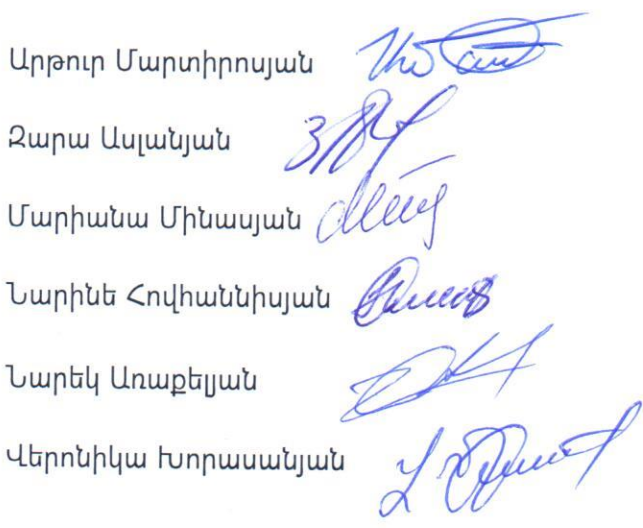 Արթուր Մարտիրոսյան
Զարա Ասլանյան
Մարիանա Մինասյան
Նարինե Հովհաննիսյան
Նարեկ Առաքելյան
Վերոնիկա Խորասանյան